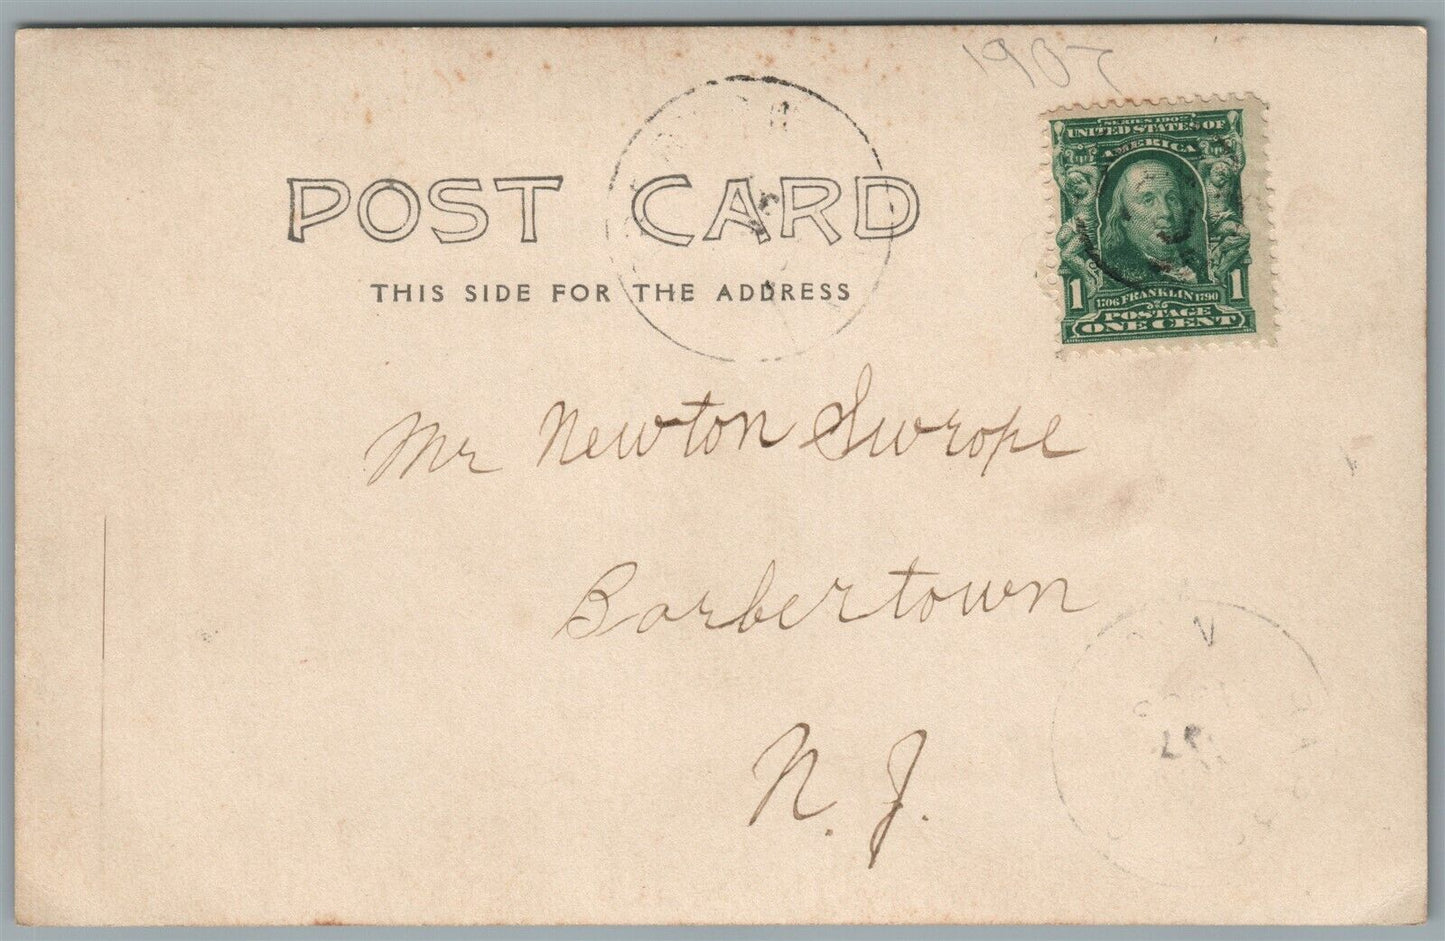 1907
POST CARD
THIS SIDE FOR THE ADDRESS
SERIES 1902
UNITED STATES OF
AMERICA
1 1
1706 FRANKLIN 1790
POSTAGE
ONE CENT
Mr Newton Swrope
Barbertown
N. J.